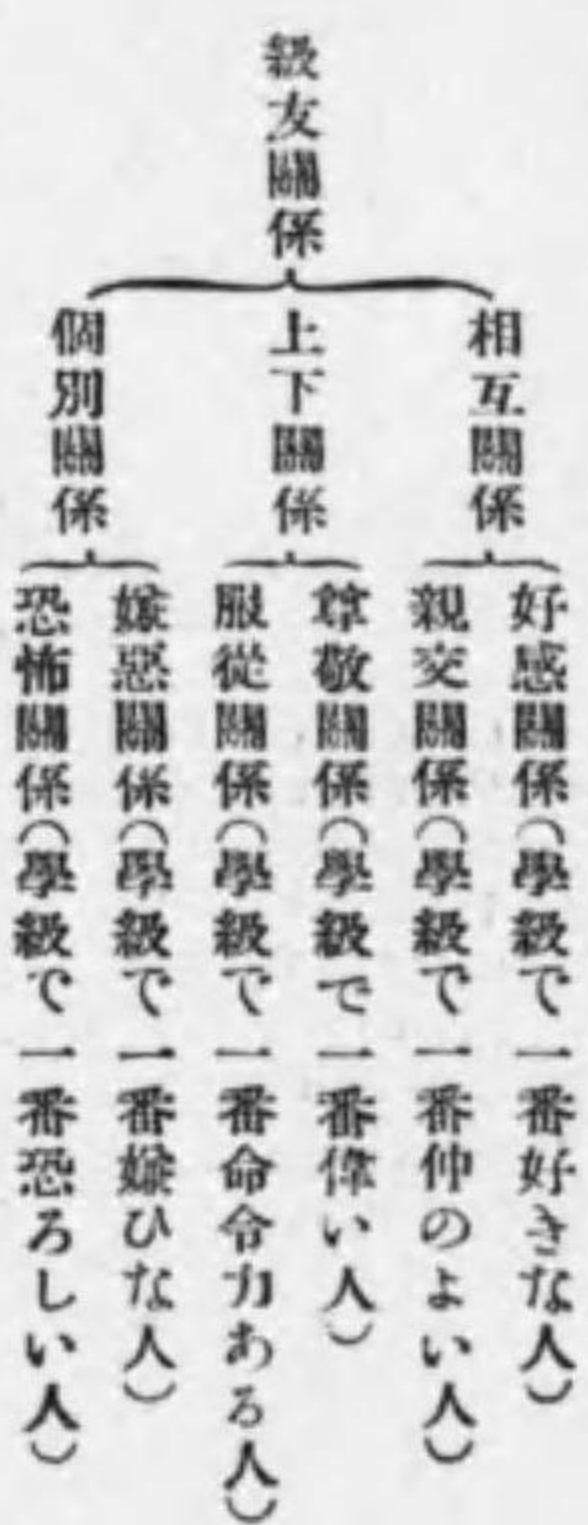 級友關係
相互關係
好感關係(學級で一番好きな人)
親交關係(學級で一番仲のよい人)
上下關係
尊敬關係(學級で一番偉い人)
服從關係(學級で一番命令力ある人)
個別關係
嫌惡關係(學級で一番嫌ひな人)
恐怖關係(學級で一番恐ろしい人)